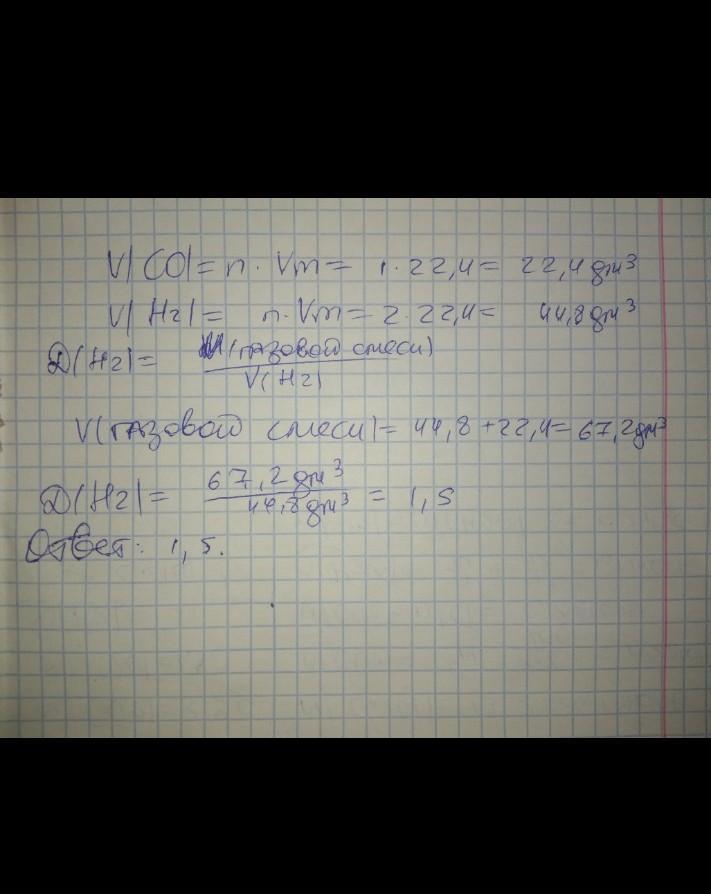 V(CO)= n · Vm = 1·22,4= 22,4 дм³
V(H2)= n·Vm= 2·22,4= 44,8 дм³
D(H2)= (газовой смеси)
V(H2)
V(газовой смеси)= 44,8+22,4= 67,2 дм³
D(H2)= 67,2 дм³ / 44,8 дм³ = 1,5
Ответ: 1,5.